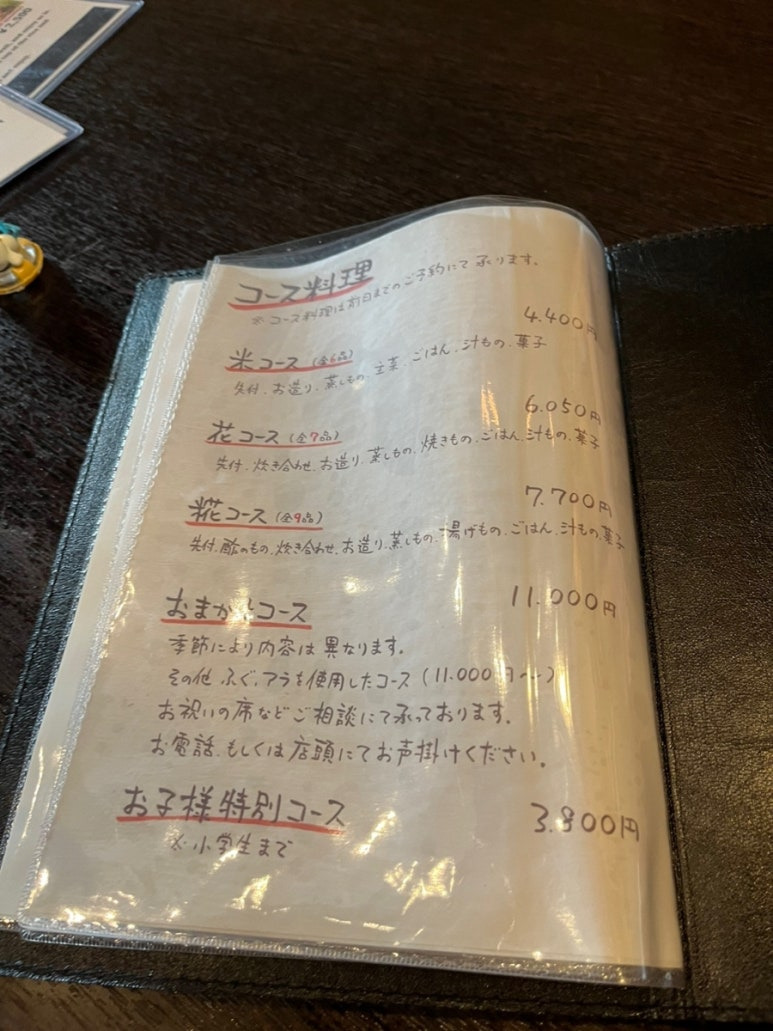 ¥2,500
コース料理
※コース料理は前日までのご予約にて承ります。
米コース(全6品) 4.400円
先付.お造り.蒸しもの.主菜.ごはん.汁もの.菓子
花コース(全7品) 6.050円
先付.炊き合わせ.お造り.蒸しもの.焼きもの.ごはん.汁もの.菓子
糀コース(全9品) 7.700円
先付.酢のもの.炊き合わせ.お造り.蒸しもの.揚げもの.ごはん.汁もの.菓子
おまかせコース 11.000円
季節により内容は異なります。
その他ふぐ.アラを使用したコース(11.000円〜)
お祝いの席などご相談にて承っております。
お電話.もしくは店頭にてお声掛けください。
お子様特別コース 3.800円
※小学生まで